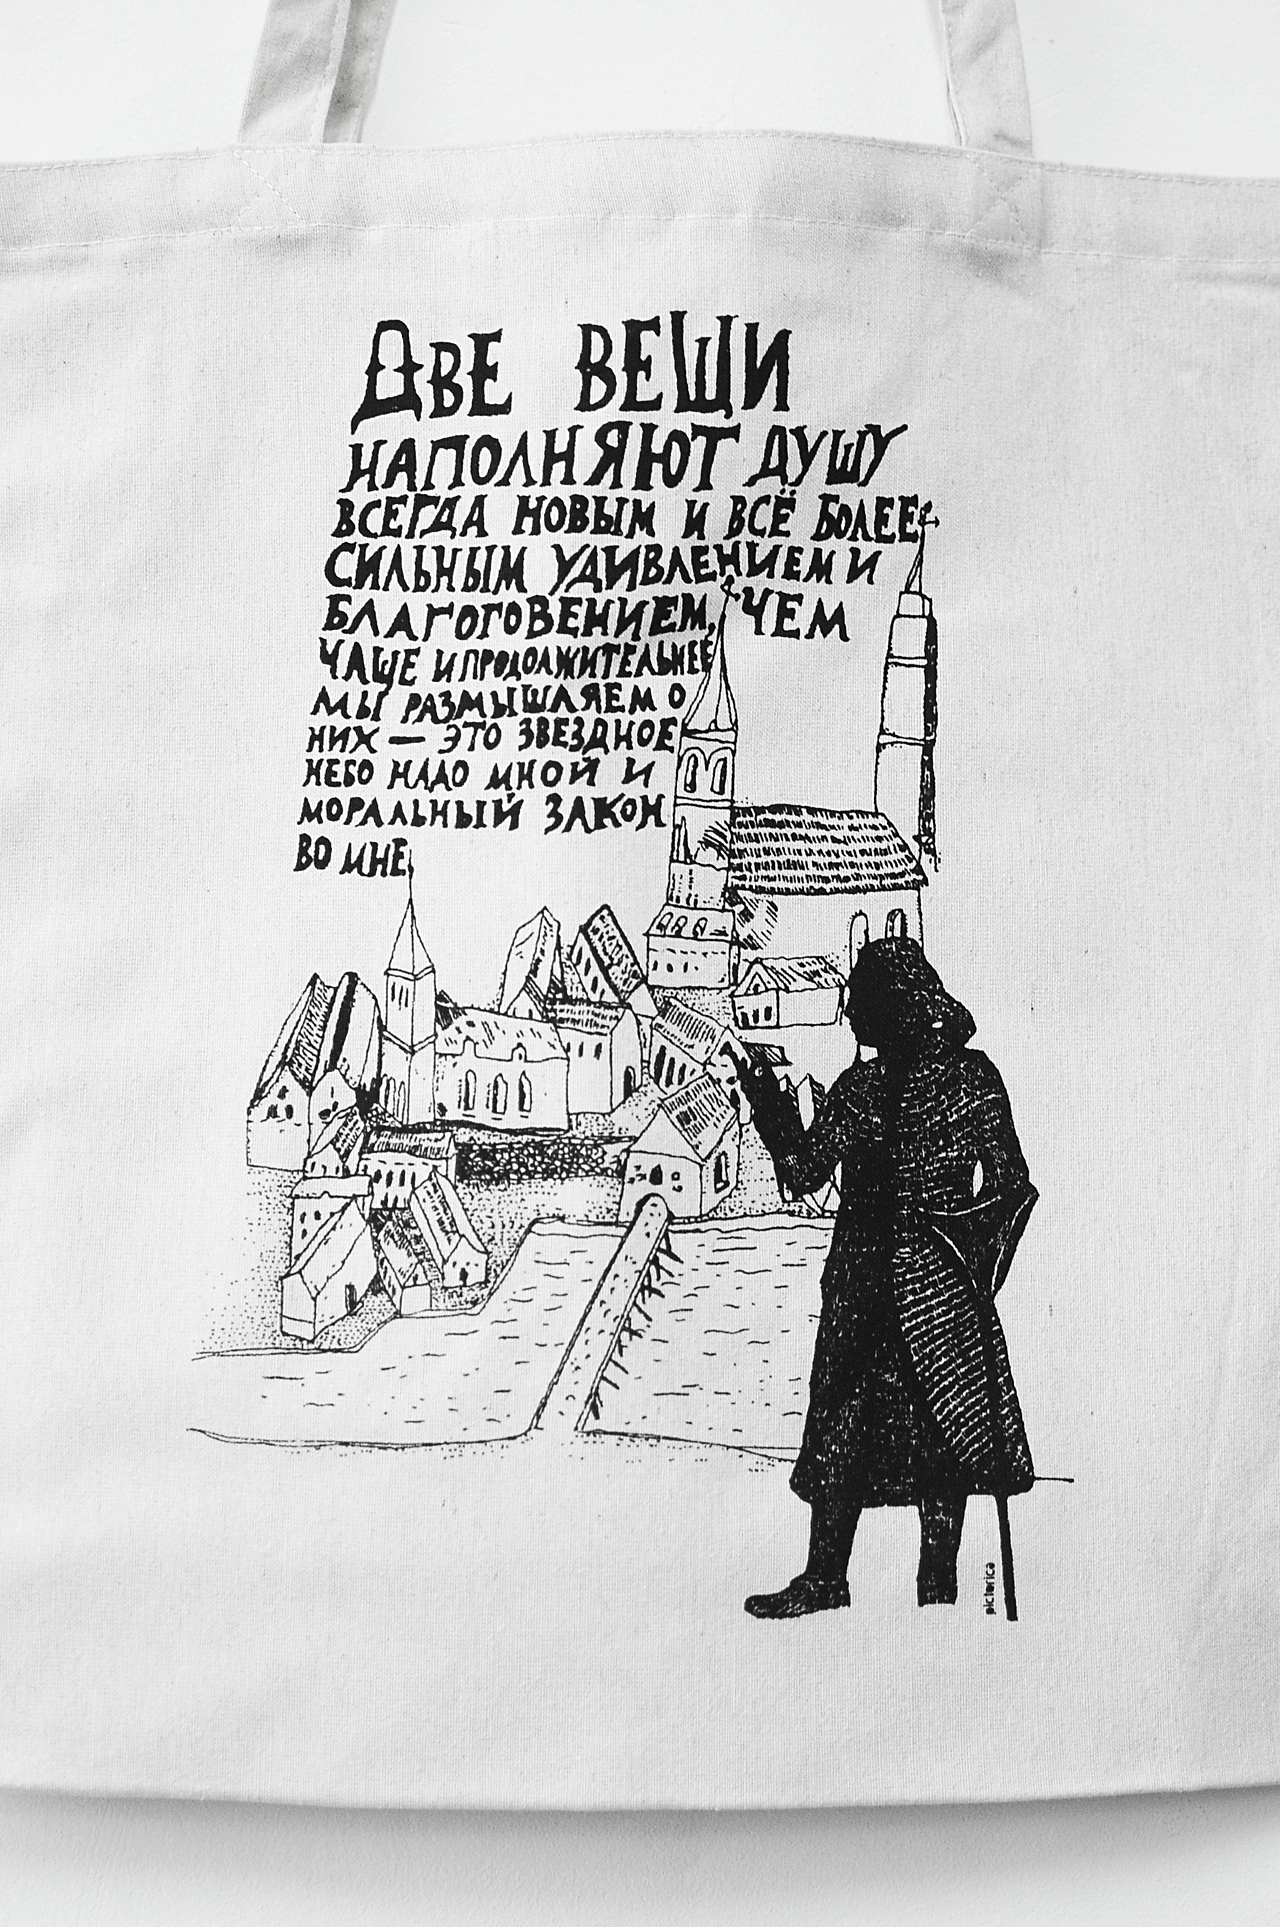 ДВЕ ВЕЩИ
НАПОЛНЯЮТ ДУШУ
ВСЕГДА НОВЫМ И ВСЁ БОЛЕЕ
СИЛЬНЫМ УДИВЛЕНИЕМ И
БЛАГОГОВЕНИЕМ, ЧЕМ
ЧАЩЕ И ПРОДОЛЖИТЕЛЬНЕЕ
МЫ РАЗМЫШЛЯЕМ О
НИХ — ЭТО ЗВЕЗДНОЕ
НЕБО НАДО МНОЙ И
МОРАЛЬНЫЙ ЗАКОН
ВО МНЕ
pictorica